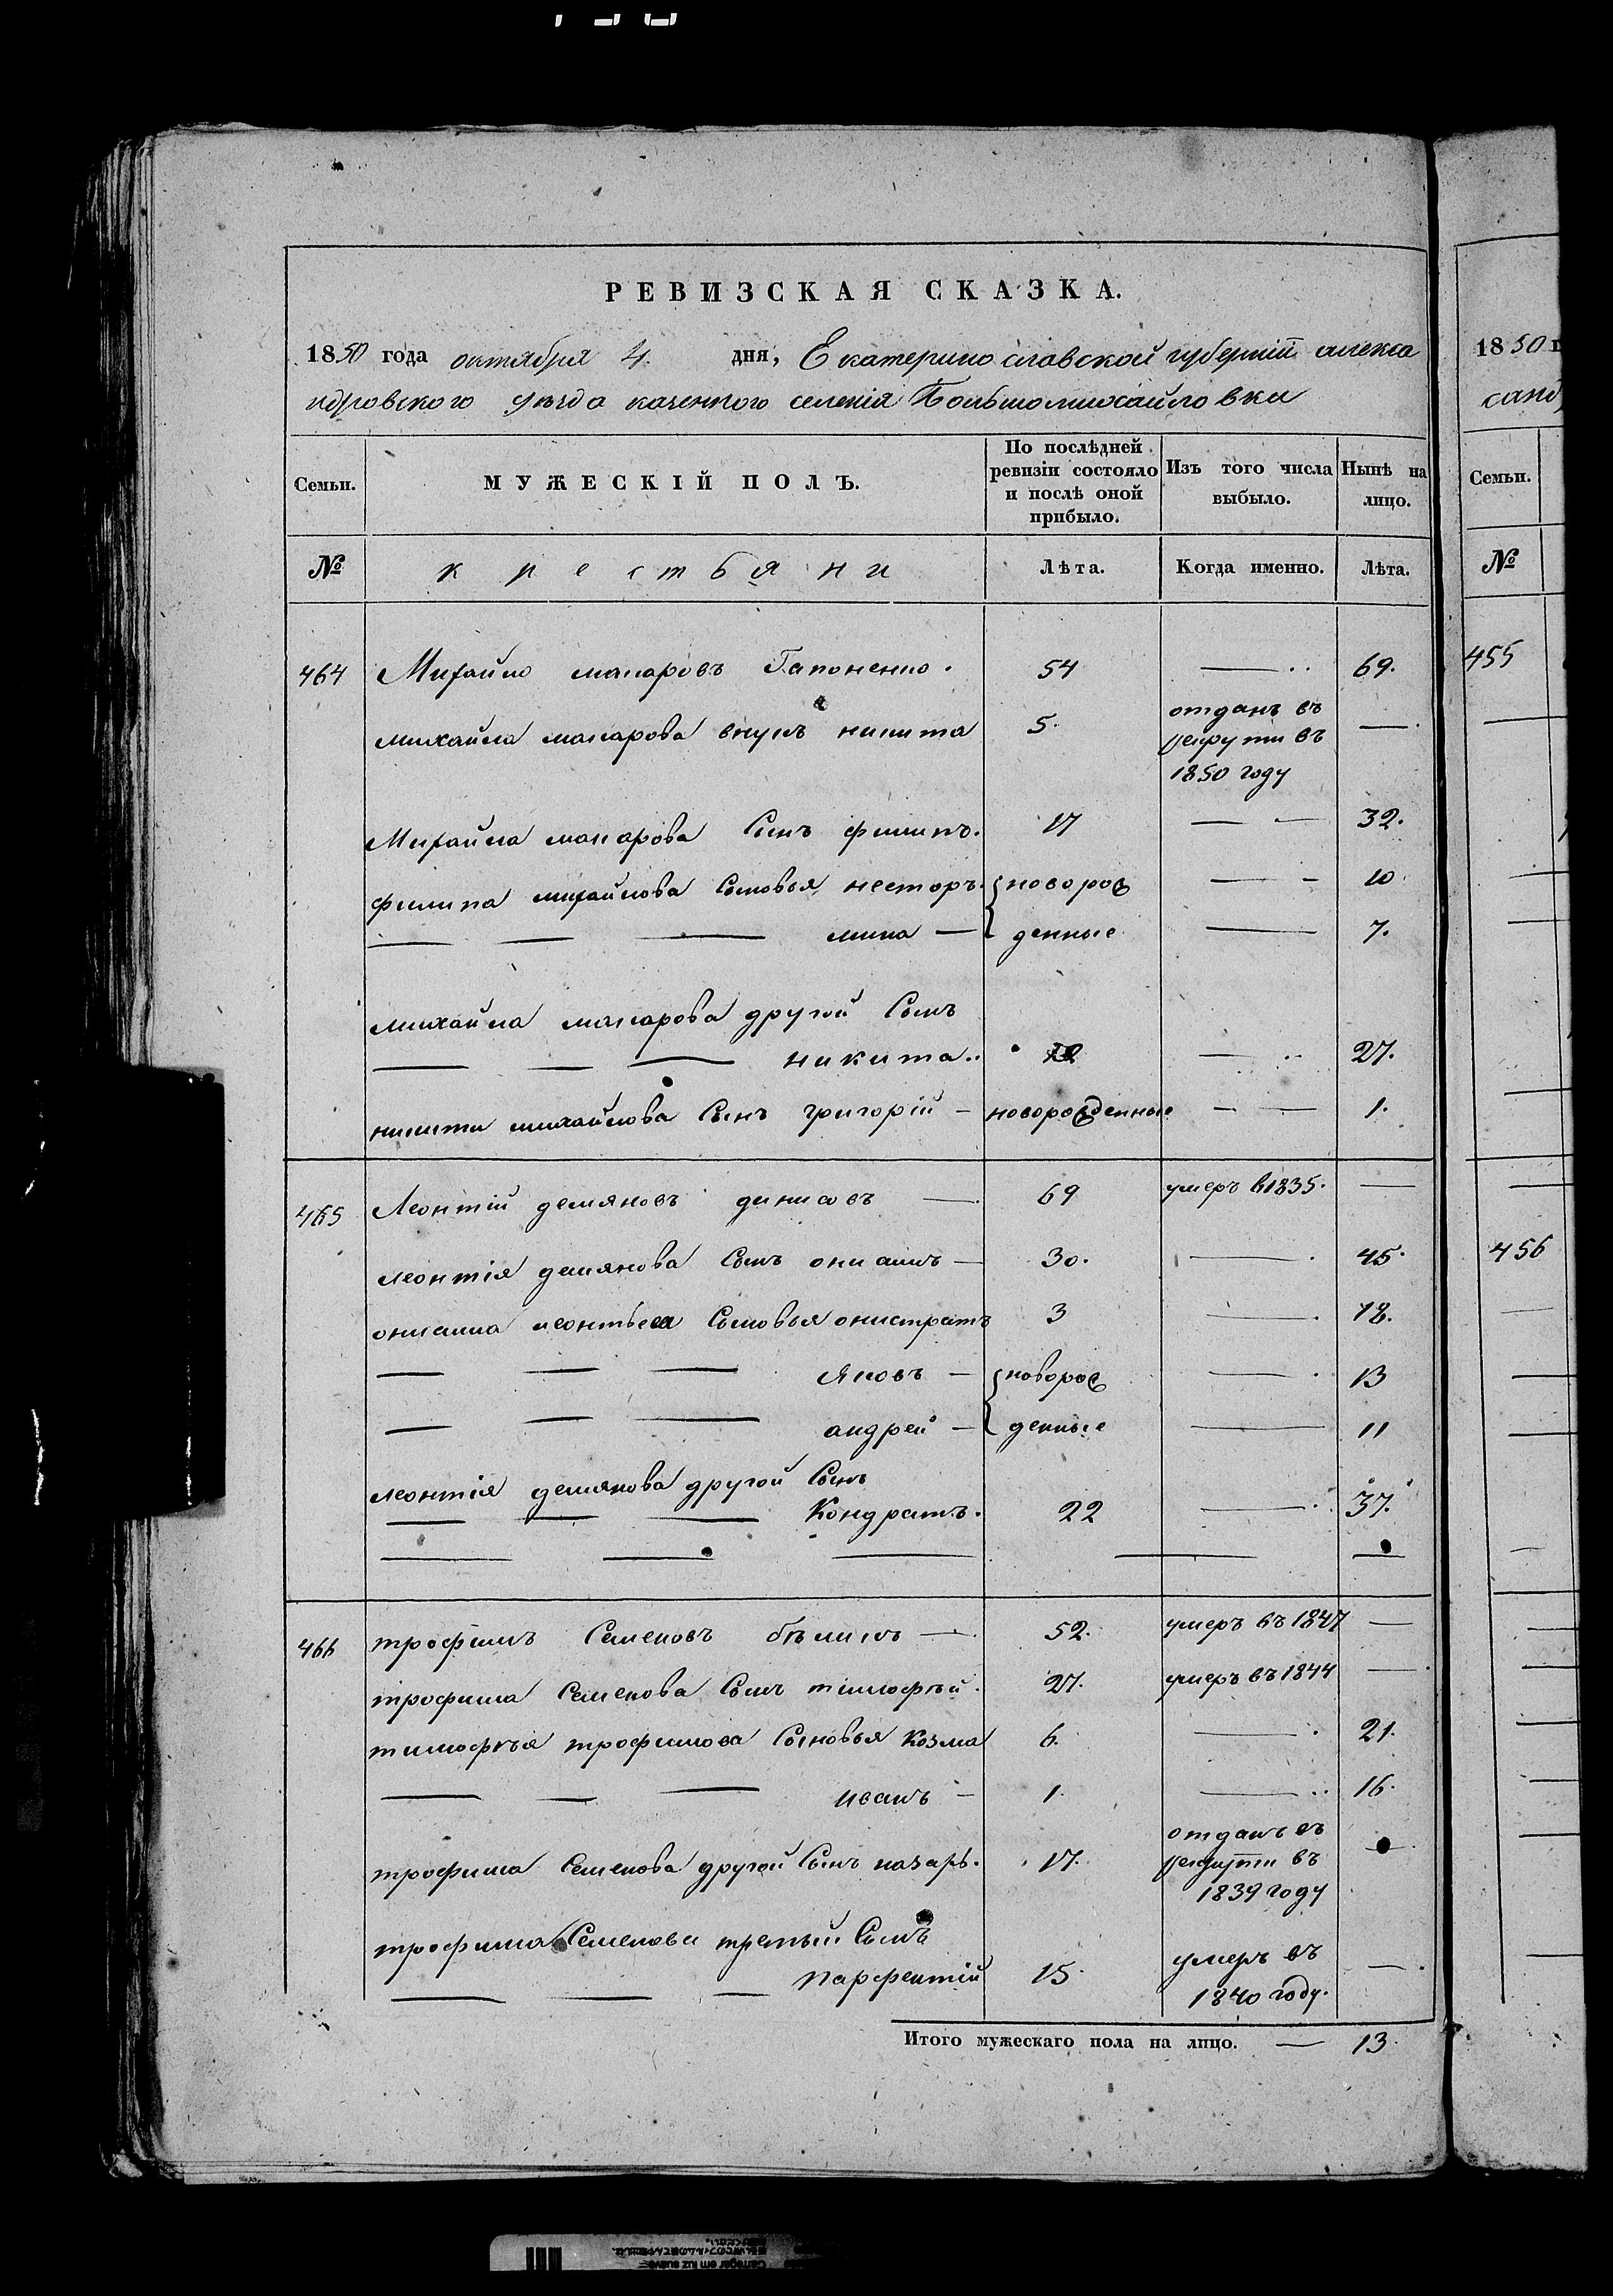 РЕВИЗСКАЯ СКАЗКА.
1850 года октября 4. дня, Екатеринославской губерніи алекса
ндровского уѣзда казенного селенія Большомихайловки
Семьи.
МУЖЕСКІЙ ПОЛЪ.
По послѣдней ревизіи состояло и послѣ оной прибыло.
Изъ того числа выбыло.
Нынѣ на лицо.
№ крестьяни Лѣта. Когда именно. Лѣта.
464 Михайло макаровъ Гапоненко. 54 — 69.
михайла макарова внукъ никита 5. отданъ въ рекрути въ 1850 году —
Михайла макарова Сынъ филипъ. 17 — 32.
филипа михайлова Сыновья несторъ. новорож — 10.
— — — мина — денные — 7.
михайла макарова другой Сынъ
— — — никита.. 12 — 27.
никити михайлова Сынъ григорій — новорожденные — 1.
465 Леонтій демяновъ денисовъ — 69 умеръ в1835. —
леонтія демянова Сынъ онисимъ — 30. — 45.
онисима леонтьева Сыновья онистратъ 3 — 18.
— — — яковъ — новорож — 13
— — — андрей — денные — 11
леонтія демянова другой Сынъ
— — — Кондратъ. 22 — 37.
— — — — —
466 трофимъ Семеновъ бѣликъ — 52. умеръ въ 1847 —
трофима Семенова Сынъ тимофѣй. 27. умеръ въ 1844 —
тимофѣя трофимова Сыновья Козма 6. — 21.
— — — иванъ — 1. — 16.
трофима Семенова другой Сынъ назаръ. 17. отданъ въ рекрути въ 1839 году —
трофима Семенова третьи Сынъ
— — — парфентій 15. умеръ въ 1840 году. —
Итого мужескаго пола на лицо. — 13.
1850 г
санд
Семьи.
№
455
456